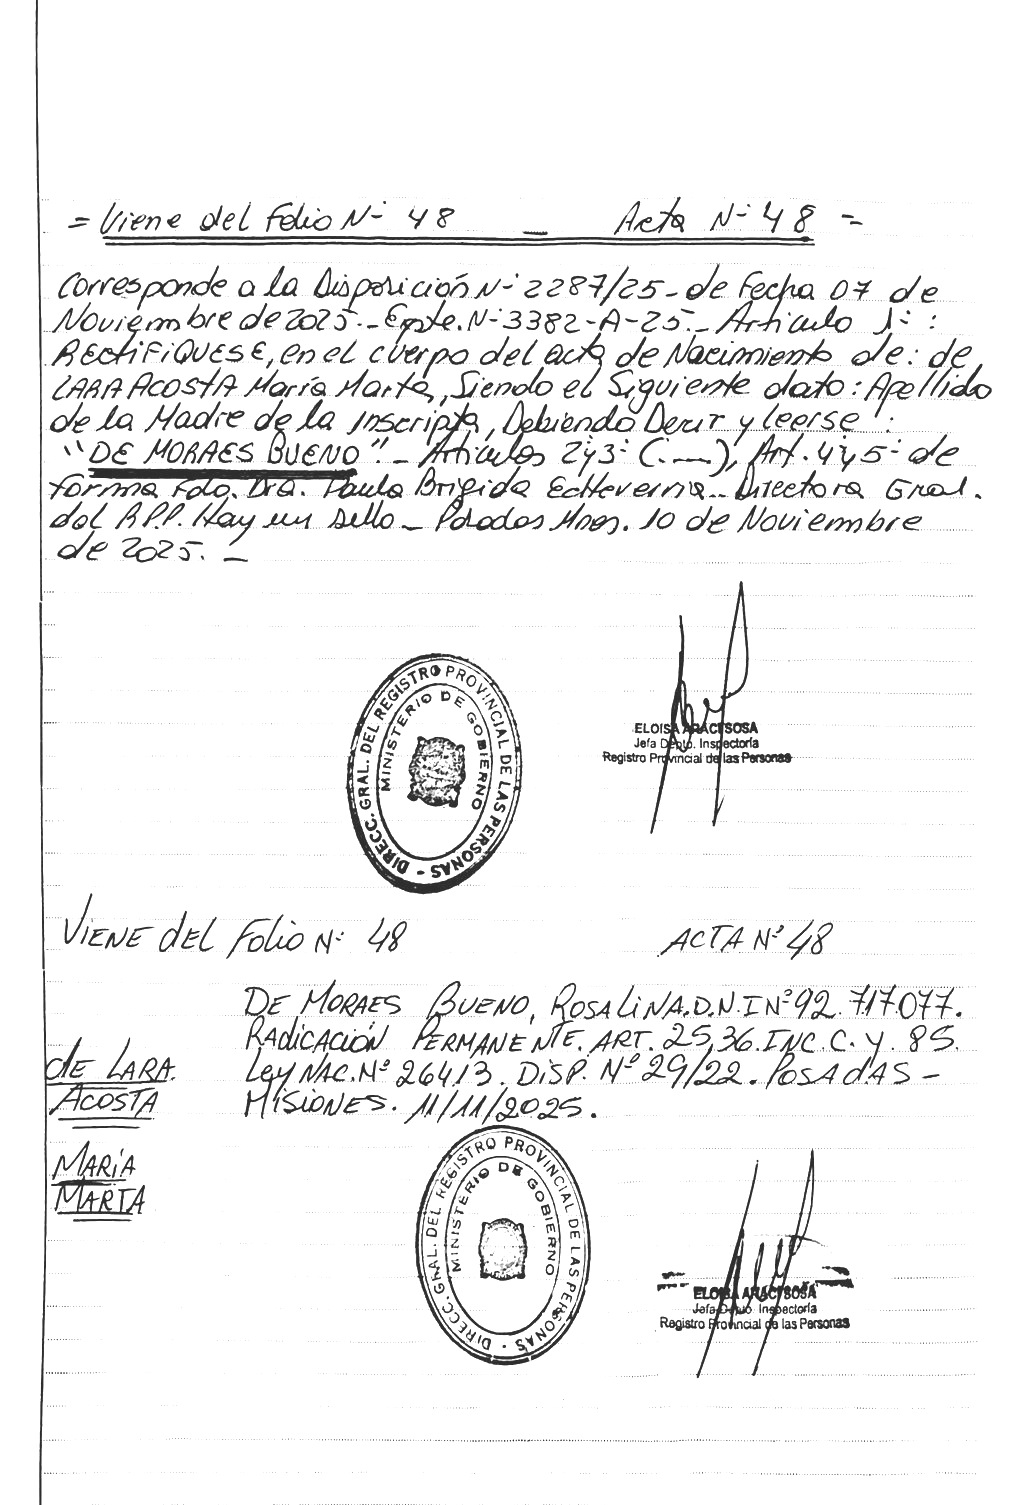 = Viene del Folio N° 48 — Acta N° 48 =
Corresponde a la Disposición N° 2287/25 - de Fecha 07 de
Noviembre de 2025. - Expte. N° 3382-A-25. - Artículo 1°:
RECTIFIQUESE, en el cuerpo del acta de Nacimiento de: de
LARA ACOSTA María Marta, Siendo el Siguiente dato: Apellido
de la Madre de la Inscripta, Debiendo Decir y leerse:
"DE MORAES BUENO". - Artículos 2°y 3° (.—), Art. 4° y 5° de
forma Fdo. Dra. Paula Brigida Echeverria - Directora Gral.
del R.P.P. Hay un sello - Posadas Mnes. 10 de Noviembre
de 2025. —
DIRECC. GRAL. DEL REGISTRO PROVINCIAL DE LAS PERSONAS -
MINISTERIO DE GOBIERNO
ELOISA ARACI SOSA
Jefa Dpto. Inspectoría
Registro Provincial de las Personas
VIENE DEL Folio N° 48 ACTA N° 48
DE MORAES BUENO, ROSALINA. D.N.I N° 92.717.077.
RADICACIÓN PERMANENTE. ART. 25, 36. INC. C. Y. 85.
Ley NAC. N° 26413. DISP. N° 29/22. POSADAS -
MISIONES. 11/11/2025.
de LARA
ACOSTA
MARÍA
MARTA
DIRECC. GRAL. DEL REGISTRO PROVINCIAL DE LAS PERSONAS -
MINISTERIO DE GOBIERNO
ELOISA ARACI SOSA
Jefa Dpto. Inspectoría
Registro Provincial de las Personas